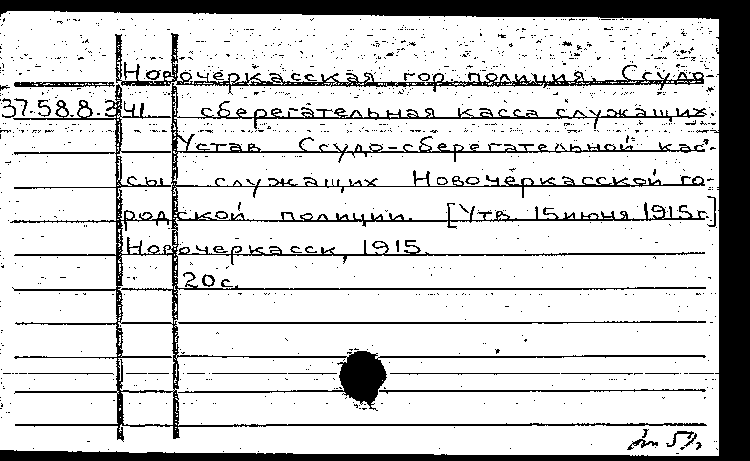 Новочеркасская гор. полиция. Ссудо-
37.58.8.341 сберегательная касса служащих.
Устав Ссудо-сберегательной кас-
сы служащих Новочеркасской го-
родской полиции. [Утв. 15 июня 1915 г.]
Новочеркасск, 1915.
20 с.